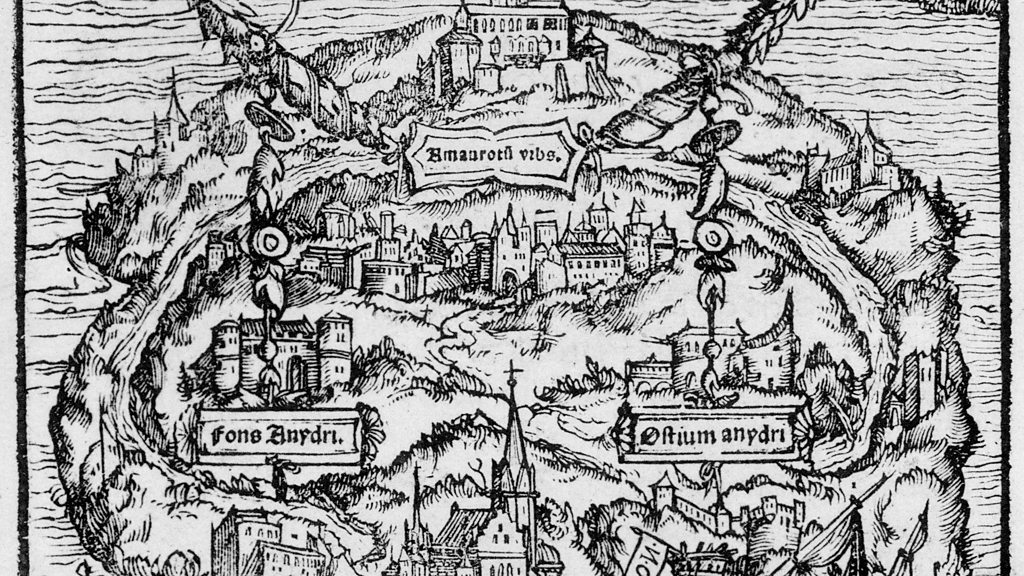 Amaurotū vrbs.
fons Anydri.
Ostium anydri